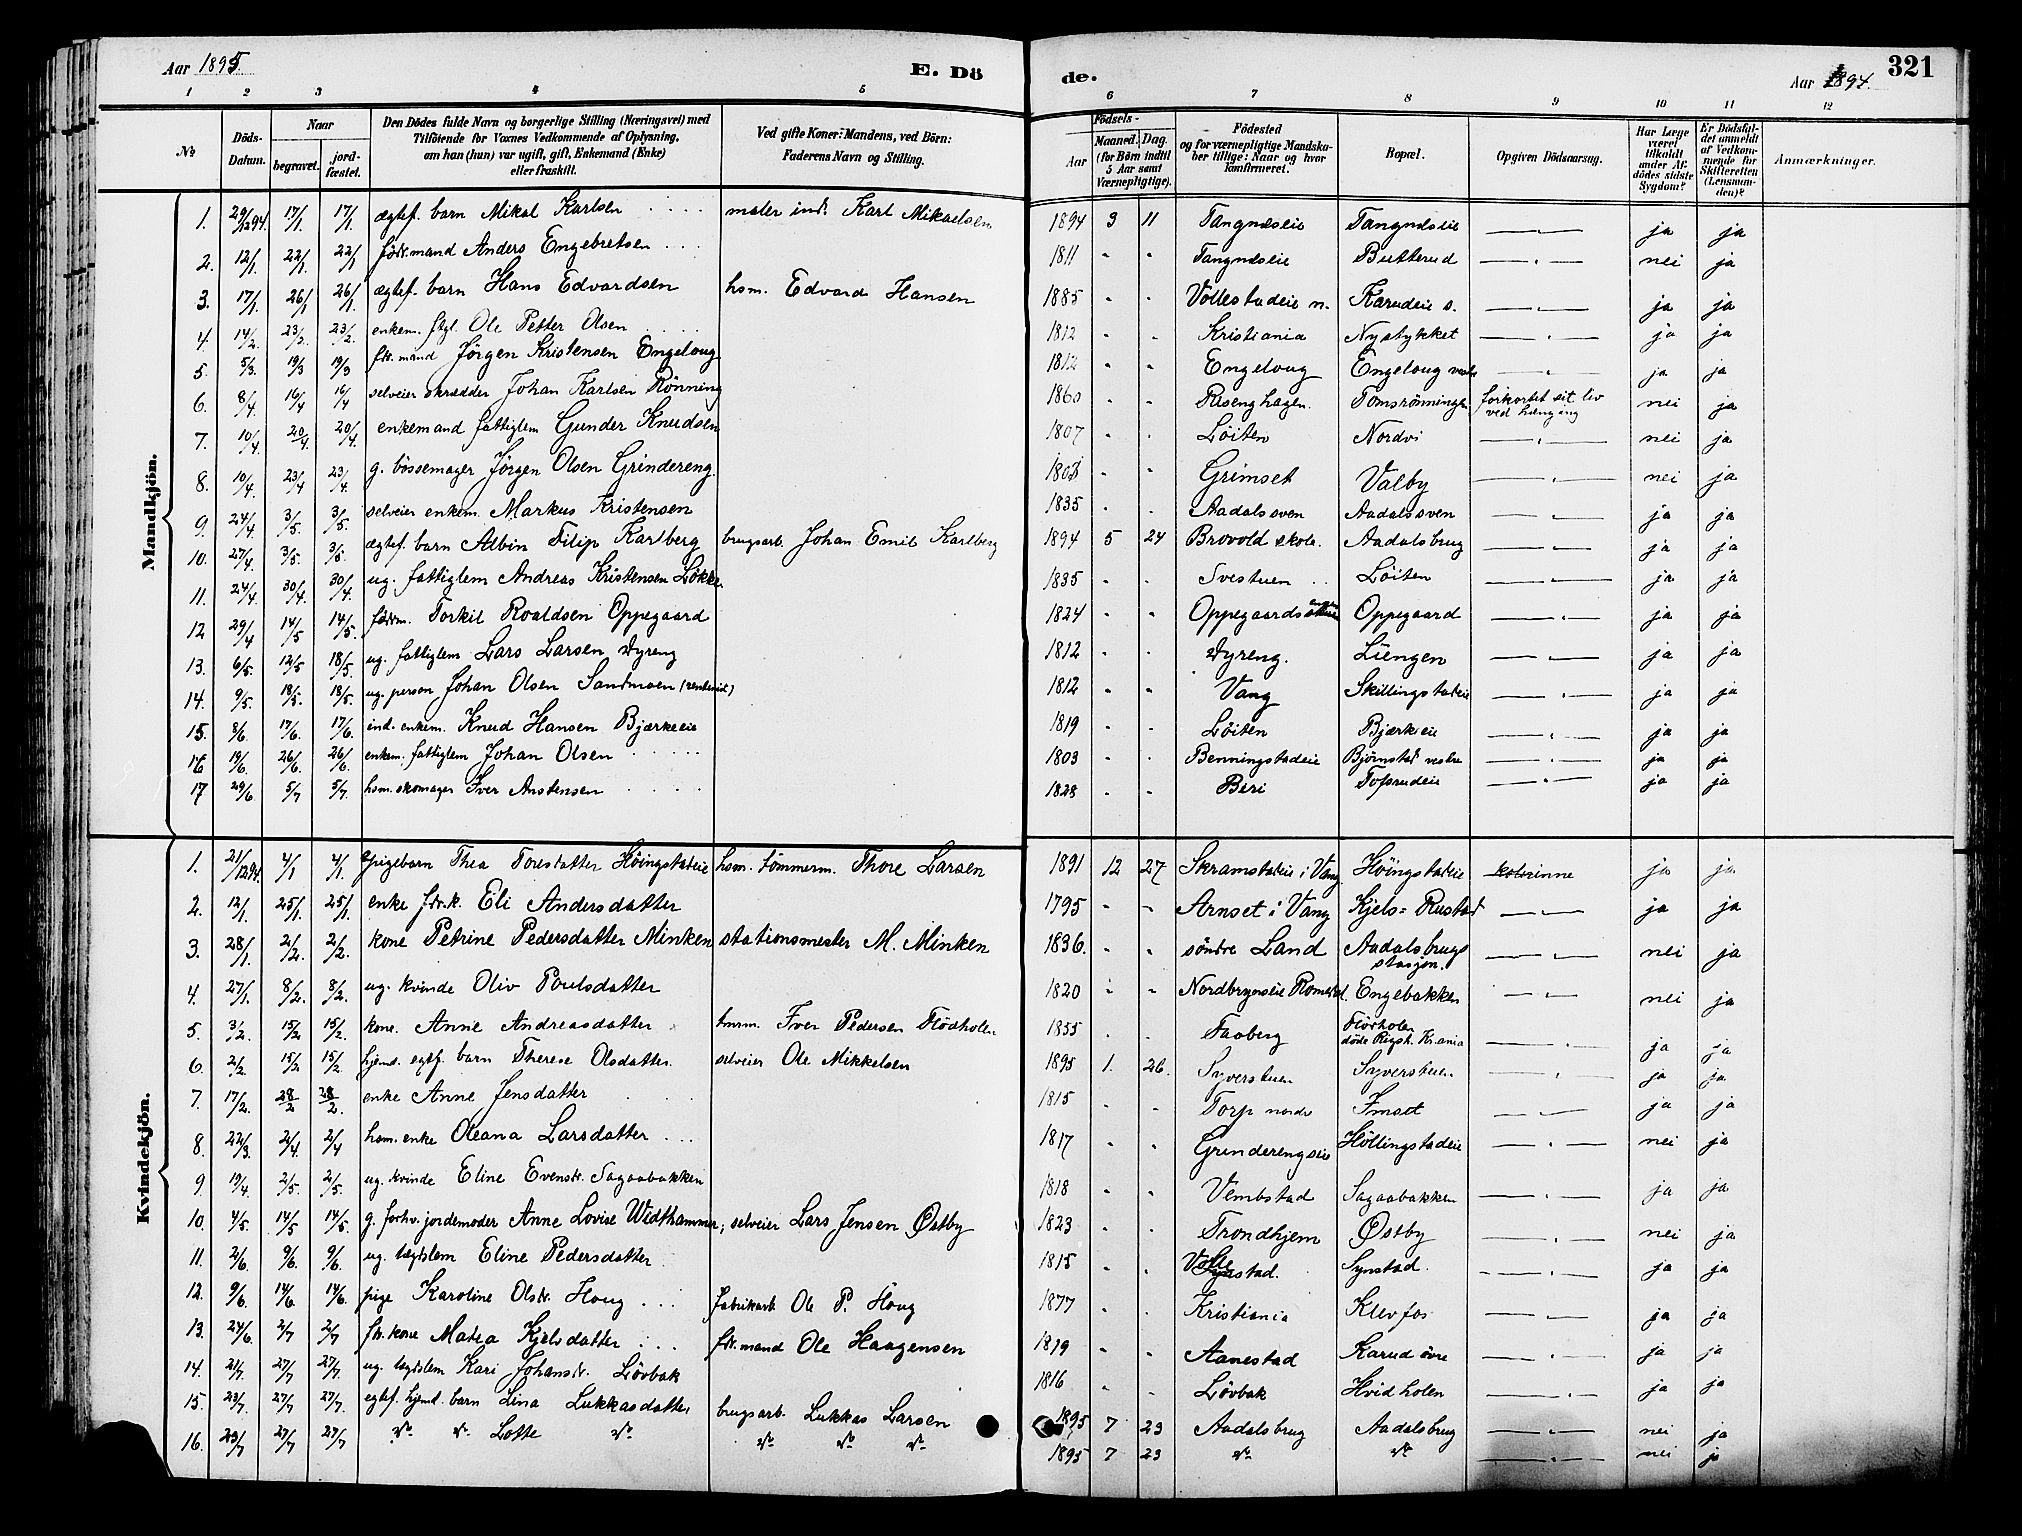 Aar 1895.
E. Dö
de.
Aar 1894.
321
1 2 3 4 5 6 7 8 9 10 11 12
No
Döds-Datum.
Naar
begravet.
jord-fæstet.
Den Dödes fulde Navn og borgerlige Stilling (Næringsvei) med
Tilföiende for Voxnes Vedkommende af Oplysning,
om han (hun) var ugift, gift, Enkemand (Enke)
eller fraskilt.
Ved gifte Koner: Mandens, ved Börn:
Faderens Navn og Stilling.
Födsels-
Aar
Maaned. Dag.
(for Börn indtil
5 Aar samt
Værnepligtige).
Födested
og for værnepligtige Mandska-
ber tillige: Naar og hvor
konfirmeret.
Bopæl.
Opgiven Dödsaarsag.
Har Læge
været
tilkaldt
under Af-
dödes sidste
Sygdom?
Er Dödsfal-
det anmeldt
af Vedkom-
mende for
Skifteretten
(Lensman-
den)?
Anmærkninger.
Mandkjön.
1. 29/12 94. 17/1 17/1. ægtef. barn Mikal Karlsen maler ind. Karl Mikaelsen 1894 3 11 Tangnæseie Tangnæseie — " — ja ja
2. 12/1. 22/1 22/1 födr.mand Anders Engebretsen 1811 " " Tangnæseie Butterud — " — nei ja
3. 17/1. 26/1 26/1. ægtef. barn Hans Edvardsen hsm. Edvard Hansen 1885 " " Vollestadeie n. Karudeie s. — " — ja ja
4. 14/2. 23/2. 23/2. enkem. ftgl. Ole Petter Olsen 1812 " " Kristiania Nystykket — " — ja ja
5. 5/3. 19/3 19/3 fdr.mand Jörgen Kristensen Engeloug 1812 " " Engeloug Engeloug vestre — " — ja ja
6. 8/4. 16/4 16/4 selveier skrædder Johan Karlsen Rönning 1860 " " Risenghagen. Tomsrönningen forkortet sit liv ved hængning nei ja
7. 10/4. 20/4. 20/4. enkemand fattiglem Gunder Knudsen 1807 " " Löiten Nordvi — " — nei ja
8. 10/4. 23/4 23/4. g. bössemager Jörgen Olsen Grindereng. 1803 " " Grimset Valby — " — nei ja
9. 24/4. 3/5 3/5. selveier enkem. Markus Kristensen 1835 " " Aadalssven Aadalssven — " — ja ja
10. 27/4. 3/5. 3/5. ægtef. barn Albin Filip Karlberg brugsarb. Johan Emil Karlberg 1894 5 24 Brovold skole. Aadalsbrug — " — ja ja
11. 24/4. 30/4. 30/4. ug. fattiglem Andreas Kristensen Lökke 1835 " " Svestuen Löiten — " — ja ja
12 29/4 14/5 14/5. födrm. Torkil Roaldsen Oppegaard 1824 " " Oppegaards Oppegaard — " — ja ja
13. 6/5. 12/5 18/5. ug. fattiglem Lars Larsen Dyreng 1812 " " Dyreng. Liengen — " — ja ja
14. 9/5. 18/5. 18/5. ug. person Johan Olsen Sandmoen 1812 " " Vang Skillingstadeie — " — ja ja
15. 8/6. 17/6. 17/6. ind. enkem. Knud Hansen Bjærkeeie 1819 " " Löiten Bjærkeie — " — ja ja
16 19/6. 26/6. 26/6. enkem. fattiglem Johan Olsen 1803 " " Benningstadeie Björnstad vestre — " — ja ja
17 29/6 5/7 5/7. hsm. skomager Iver Anstensen 1828 " " Biri Tofsrudeie — " — ja ja
Kvindekjön.
1. 21/12 94. 4/1 4/1. pigebarn Thea Torestatter Höingstadeie hsm. tömmerm. Thore Larsen 1891 12 27 Skramstadeie i Vang. Höingstadeie ja ja
2. 12/1. 25/1. 25/1. enke fdr.k. Eli Andersdatter 1795 " " Arnset i Vang Kjels=Rustad — " — ja ja
3. 28/1. 2/2. 2/2. kone Petrine Pedersdatter Minken stationsmester M. Minken 1836. " " söndre Land Aadalsbrugs stasjon. — " — nei ja
4. 27/1. 8/2. 8/2. ug. kvinde Oliv Poulsdatter 1820 " " Nordbrynseie Romedal. Engebakken — " — nei ja
5. 3/2. 15/2 15/2. kone. Anne Andreasdatter tmrm. Iver Pedersen Flödholen 1855 " " Faaberg Flödholen döde Rigsh. Kr.ania — " — ja ja
6. 2/2. 15/2 15/2. hjemd. egtef. barn Therese Olsdatter. selveier Ole Mikkelsen 1895 1. 26. Syverstuen Syverstuen — " — ja ja
7. 17/2. 28/2 28/2. enke Anne Jensdatter 1815 " " Torp nordr Imset — " — ja ja
8. 22/3. 2/4. 2/4 hsm. enke Oleana Larsdatter 1817 " " Grinderengseie Höllingstadeie — " — nei ja
9 19/4. 2/5. 2/5. ug. kvinde Eline Evensdr. Sagaabakken 1818 " " Vembstad Sagaabakken — " — ja ja
10. 4/5. 14/5 14/5. g. forhv. jordemoder Anne Lovise Widthammer, selveier Lars Jensen Østby 1823 " " Trondhjem Østby — " — nei ja
11. 2/6. 9/6. 9/6. ug. lægdslem Eline Pedersdatter 1815 " " Volle Synstad. Synstad. — " — ja ja
12. 9/6. 14/6. 14/6. pige Karoline Olsdr. Houg fabrikarb. Ole P. Houg 1877 " " Kristiania Klevfos — " — ja ja
13. 24/6. 2/7 2/7 fdr. kone Matea Kjelsdatter fdr. mand Ole Haagensen 1819 " " Aanestad Karud övre — " — ja ja
14. 21/7. 27/7 27/7. ug. lægdslem Kari Johansdr. Lövbak 1816 " " Lövbak Hvidholen — " — ja ja
15. 23/7. 27/7 27/7. egtef. hjemd. barn Lina Lukkasdatter brugsarb. Lukkas Larsen 1895 7 23 Aadalsbrug Aadalsbrug — " — nei ja
16. 23/7 27/7 27/7 do. do. Lotte do. do. do. do. 1895 7 23 do. do. — " — nei ja